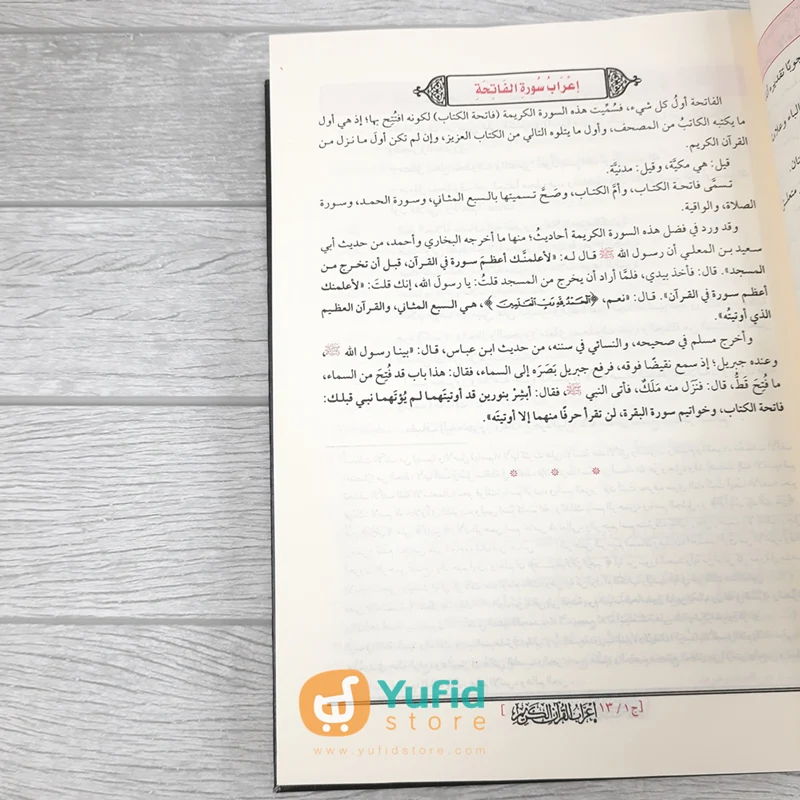 إعْرَابُ سُورَةِ الفَاتِحَةِ
الفاتحة أولُ كل شيء، فسُمِّيت هذه السورة الكريمة (فاتحة الكتاب) لكونه افتُتِح بها؛ إذ هي أول
ما يكتبه الكاتبُ من المصحف، وأول ما يتلوه التالي من الكتاب العزيز، وإن لم تكن أولَ ما نزل من
القرآن الكريم.
قيل: هي مكيَّة، وقيل: مدنيَّة.
تسمَّى فاتحة الكتاب، وأمَّ الكتاب، وصَحَّ تسميتها بالسبع المثاني، وسورة الحمد، وسورة
الصلاة، والواقية.
وقد ورد في فضل هذه السورة الكريمة أحاديثُ؛ منها ما أخرجه البخاري وأحمد، من حديث أبي
سعيد بن المعلي أن رسول الله ﷺ قال له: «لأعلمنَّك أعظمَ سورة في القرآن، قبل أن تخرج من
المسجد». قال: فأخذ بيدي، فلمَّا أراد أن يخرج من المسجد قلتُ: يا رسولَ الله، إنك قلتَ: «لأعلمنك
أعظم سورة في القرآن». قال: «نعم، ﴿الحمد لله رب العالمين﴾، هي السبع المثاني، والقرآن العظيم
الذي أوتيتُه».
وأخرج مسلم في صحيحه، والنسائي في سننه، من حديث ابن عباس، قال: «بينا رسول الله ﷺ،
وعنده جبريل؛ إذ سمع نقيضًا فوقه، فرفع جبريل بَصَرَه إلى السماء، فقال: هذا باب قد فُتِحَ من السماء،
ما فُتِحَ قَطُّ، قال: فنَزَل منه مَلَكٌ، فأتى النبي ﷺ، فقال: أبشِرْ بنورين قد أوتيتَهما لم يُؤتَهما نبي قبلك:
فاتحة الكتاب، وخواتيم سورة البقرة، لن تقرأ حرفًا منهما إلا أوتيتَه».
[ج١/ ١٣ إعراب القرآن الكريم]
Yufid
store
www.yufidstore.com